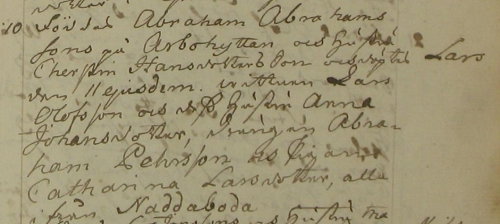 10 Föddes Abraham Abrahams
sons på Arbohyttan och hustru
Cherstin Hansdotters Son och döptes Lars
den 11 ejusdem. wittnen Lars
Olofsson och hustru Anna
Johansdotter, drängen Abra-
ham Pehrsson och Pigan
Catharina Larsdotter, alla
från Naddaboda